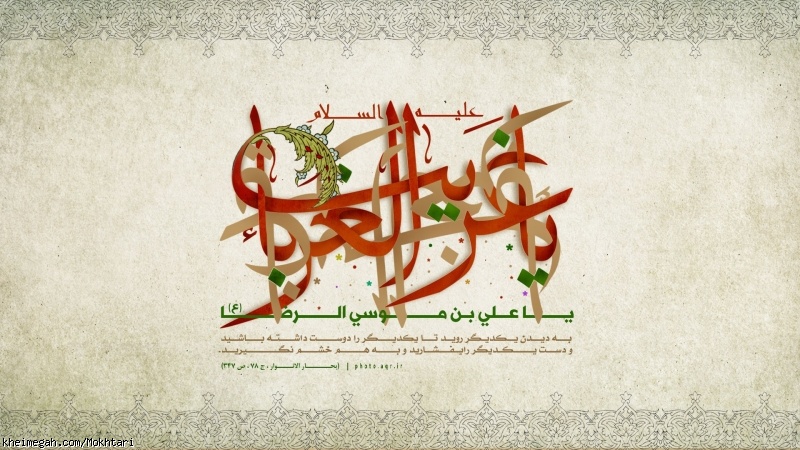 عليه السلام
يا غريب الغرباء
يا علي بن موسي الرضا (ع)
به دیدن یکدیگر روید تا یکدیگر را دوست داشته باشید
و دست یکدیگر را بفشارید و به هم خشم نگیرید.
(بحار الانوار ، ج ۷۸ ، ص ۳۴۷) | photo.aqr.ir
kheimegah.com/Mokhtari